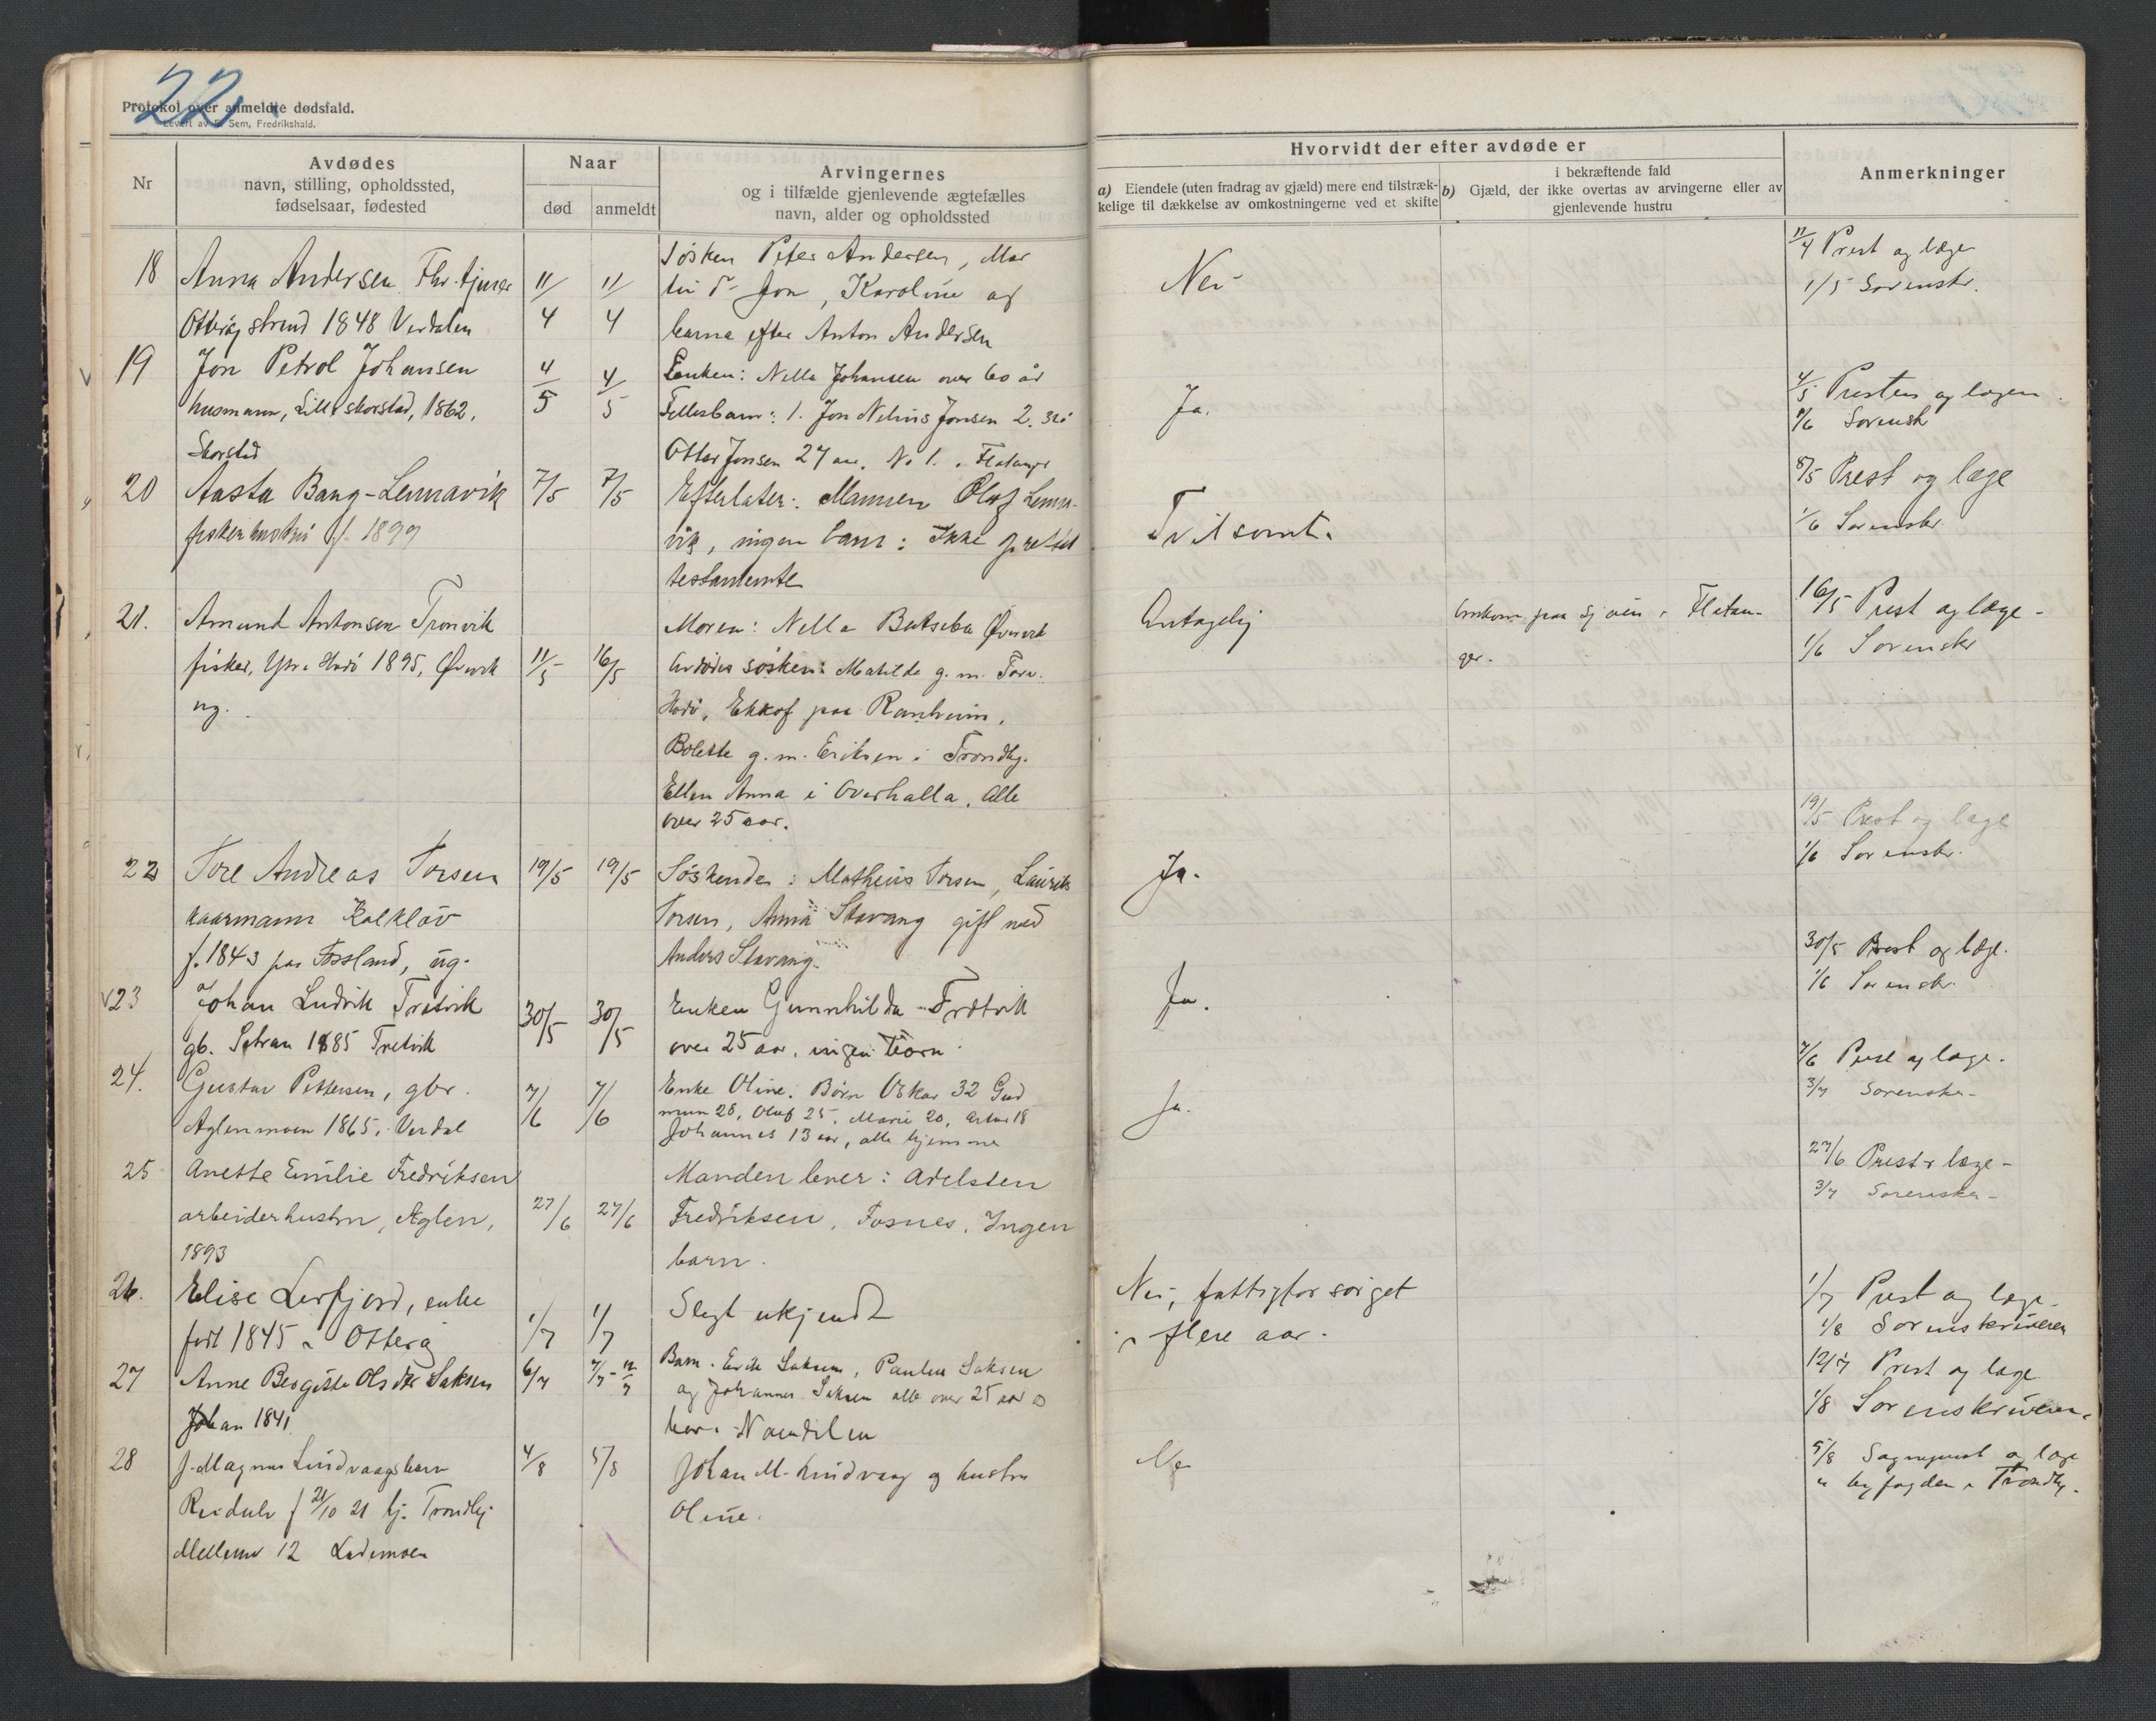 22
Protokol over anmeldte dødsfald.
Levert av E. Sem, Fredrikshald.
Nr
Avdødes
navn, stilling, opholdssted,
fødselsaar, fødested
Naar
død
anmeldt
Arvingernes
og i tilfælde gjenlevende ægtefælles
navn, alder og opholdssted
Hvorvidt der efter avdøde er
a) Eiendele (uten fradrag av gjæld) mere end tilstræk-
kelige til dækkelse av omkostningerne ved et skifte
i bekræftende fald
b) Gjæld, der ikke overtas av arvingerne eller av
gjenlevende hustru
Anmerkninger
18
Anna Andersen Fhv. tjener
1848 Verdalen
11/4
11/4
Søsken Peter Andersen, Mar
tin Jon, Karoline og
barna efter Anton Andersen
Nei
11/4 Prest og læge
1/5 Sorenskr.
19
Jon Petrol Johansen
husmann, Lille skorstad, 1862.
Skorstad
4/5
4/5
Enken: Nella Johansen over 60 år
Fellesbarn: 1. Jon Nelius Jonsen 2.
Otter Jonsen 27 aar. No 1. i Flatanger
Ja.
4/5 Presten og lægen.
1/6 Sorensk
20
Aasta Bang-Lennavik
fiskerhustru f. 1899
7/5
7/5
Efterlater: Mannen Oluf Lenna-
vik, ingen barn: Ikke oprettet
testamente
Tvilsomt.
8/5 Prest og læge
1/6 Sorenskr.
21.
Amund Antonsen Tronvik
fisker, 1895, Øvervik
ug.
11/5
16/5
Moren: Nella Batseba Øvervik
Avdødes søsken: Matilde g. m. Tore
paa Ranheim.
Bolette g. m. Eriksen i Trondhj.
Ellen Anna i Overhalla. Alle
over 25 aar.
Antagelig
Omkom paa sjøen i Flatan-
ger.
16/5 Prest og læge -
1/6 Sorenskr
22
Tore Andreas Torsen
kaarmann Kalkløv
f. 1843 paa Fossland, ug.
19/5
19/5
Søskende: Mathius Torsen, Laurits
Torsen, Anna Stavang gift med
Anders Stavang.
Ja.
19/5 Prest og læge
1/6 Sorenskr.
23
Johan Ludvik Tretvik
gb. Setran 1885 Tretvik
30/5
30/5
Enken Gunnhilda Fretvik
over 25 aar, ingen børn
Ja.
30/5 Prest og læge.
1/6 Sorenskr.
24.
Gustav Pettersen, gbr.
Aglenmoen 1865. Verdal
7/6
7/6
Enke Oline. Børn Oskar 32 Gud
mun 28, Oluf 25, Marie 20, Artur 18
Johannes 13 aar, alle hjemme
Ja.
7/6 Prest og læge.
3/7 Sorenskr-
25
Anette Emilie Fredriksen
arbeiderhustru, Aglen,
1893
27/6
27/6
Manden lever: Adelsten
Fredriksen, Fosnes. Ingen
barn.
27/6 Prest & læge -
3/7 Sorenskr-
26.
Elise Lerfjord, enke
født 1845 i Otterø
1/7
1/7
Slegt ukjendt
Nei, fattigforsørget
i flere aar.
1/7 Prest og læge.
1/8 Sorenskriveren
27
Anne Bergitte Olsdtr Saksen
1841
6/7
7/7 - 12/7
Barn. Erik Saksen, Paulus Saksen
og Johannes Saksen alle over 25 aar og
bor i Namdalen
12/7 Prest og læge
1/8 Sorenskriveren.
28
J. Magnus Lindvaags barn
Reidulv f 21/10 21 hj. Trondhj
Mellemv 12 Lademoen
4/8
5/8
Johan M. Lindvaag og hustru
Oline.
Nei
5/8 Sogneprest og læge
u byfogden i Trondhj.